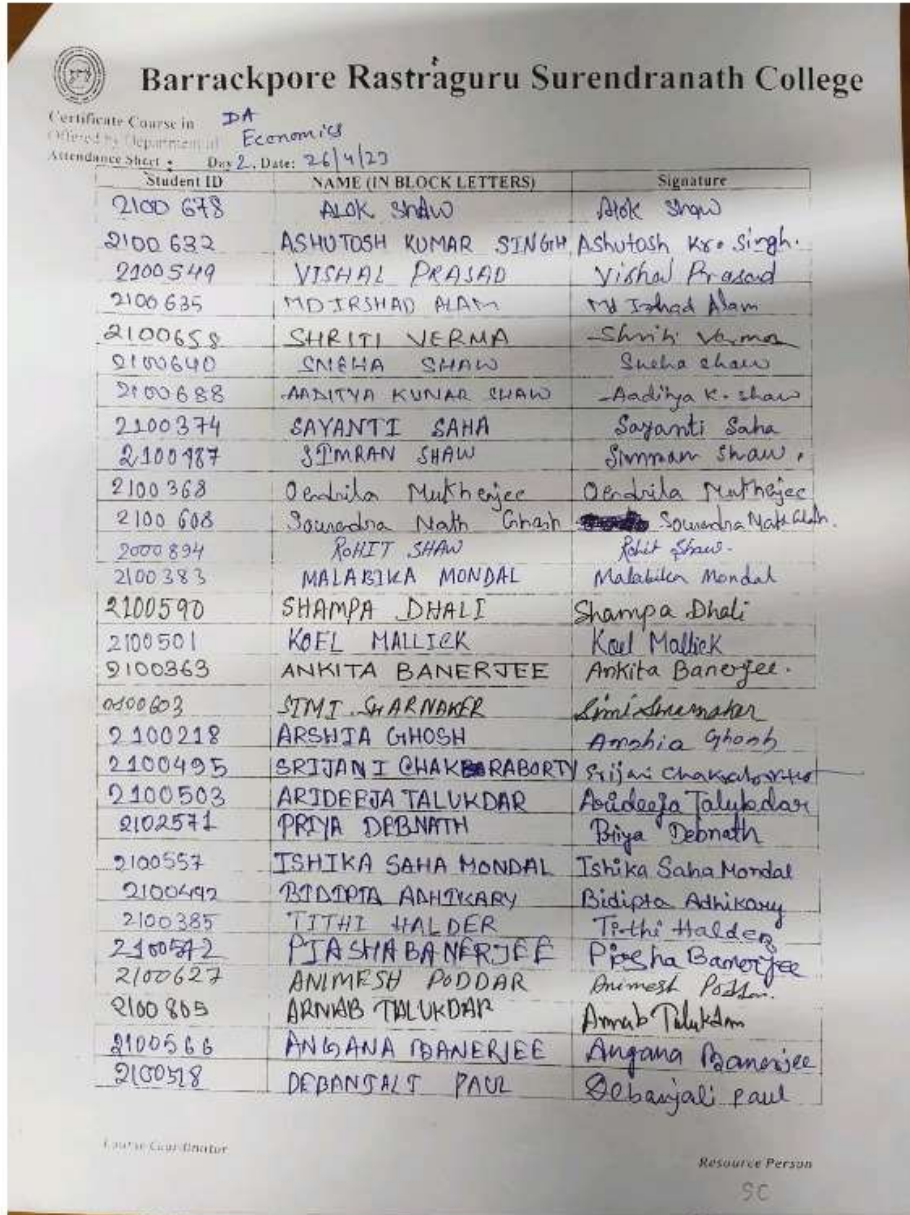 Barrackpore Rastraguru Surendranath College
Certificate Course in DA
Offered by Department of Economics
Attendance Sheet : Day 2, Date: 26/4/23
Student ID NAME (IN BLOCK LETTERS) Signature
2100 678 ALOK SHAW Alok Shaw
2100 632 ASHUTOSH KUMAR SINGH Ashutosh Kr. Singh.
2100549 VISHAL PRASAD Vishal Prasad
2100 635 MD IRSHAD ALAM Md Irshad Alam
2100658 SHRITI VERMA Shriti Verma
2100640 SNEHA SHAW Sneha Shaw
2100688 AADITYA KUMAR SHAW Aaditya K. Shaw
2100374 SAYANTI SAHA Sayanti Saha
2100487 SIMRAN SHAW Simran Shaw.
2100368 Oendrila Mukherjee Oendrila Mukherjee
2100 608 Sourendra Nath Ghosh Sourendra Nath Ghosh.
2000894 ROHIT SHAW Rohit Shaw.
2100383 MALABIKA MONDAL Malabika Mondal
2100590 SHAMPA DHALI Shampa Dhali
2100501 KOEL MALLICK Koel Mallick
2100363 ANKITA BANERJEE Ankita Banerjee.
2100603 SIMI SWARNAKER
2100218 ARSHIA GHOSH Arshia Ghosh
2100495 SRIJANI CHAKRABORTY Srijani
2100503 ARIDEEJA TALUKDAR Arideeja Talukdar
2102571 PRIYA DEBNATH Priya Debnath
2100557 ISHIKA SAHA MONDAL Ishika Saha Mondal
2100492 BIDIPTA ADHIKARY Bidipta Adhikary
2100385 TITHI HALDER Tithi Halder
2100572 PIASHA BANERJEE Piasha Banerjee
2100627 ANIMESH PODDAR Animesh Poddar.
2100805 ARNAB TALUKDAR Arnab Talukdar
2100566 ANGANA BANERJEE Angana Banerjee
2100518 DEBANJALI PAUL Debanjali Paul
Course Coordinator
Resource Person
SC